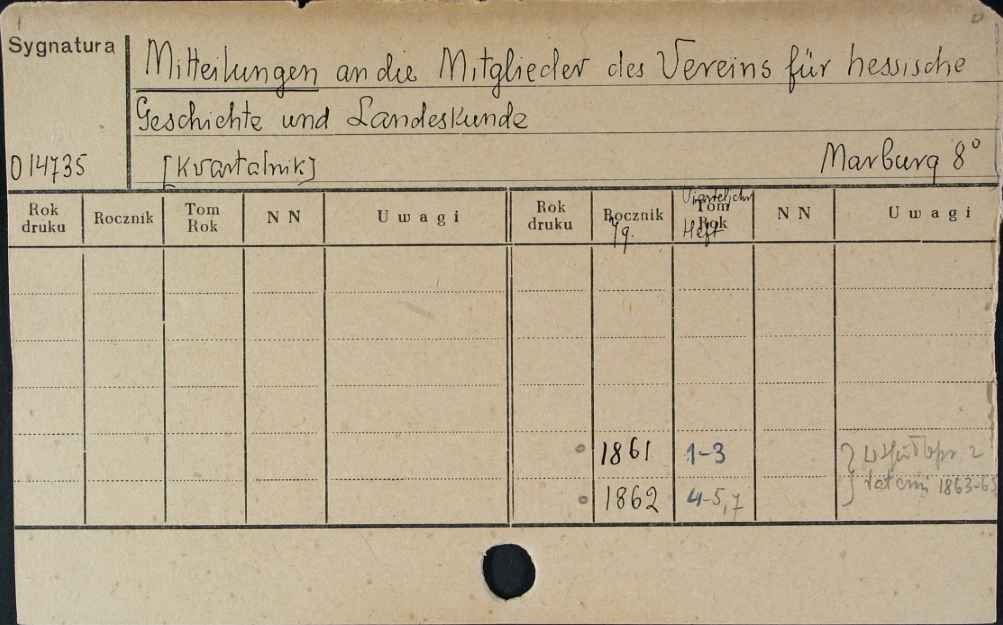 Sygnatura
Mitteilungen an die Mitglieder des Vereins für hessische
Geschichte und Landeskunde
014735 [Kwartalnik] Marburg 8°
Rok druku Rocznik Tom Rok NN Uwagi Rok druku Rocznik Jg. Tom Rok Heft NN Uwagi
1861 1-3
1862 4-5,7
2
latami 1863-65